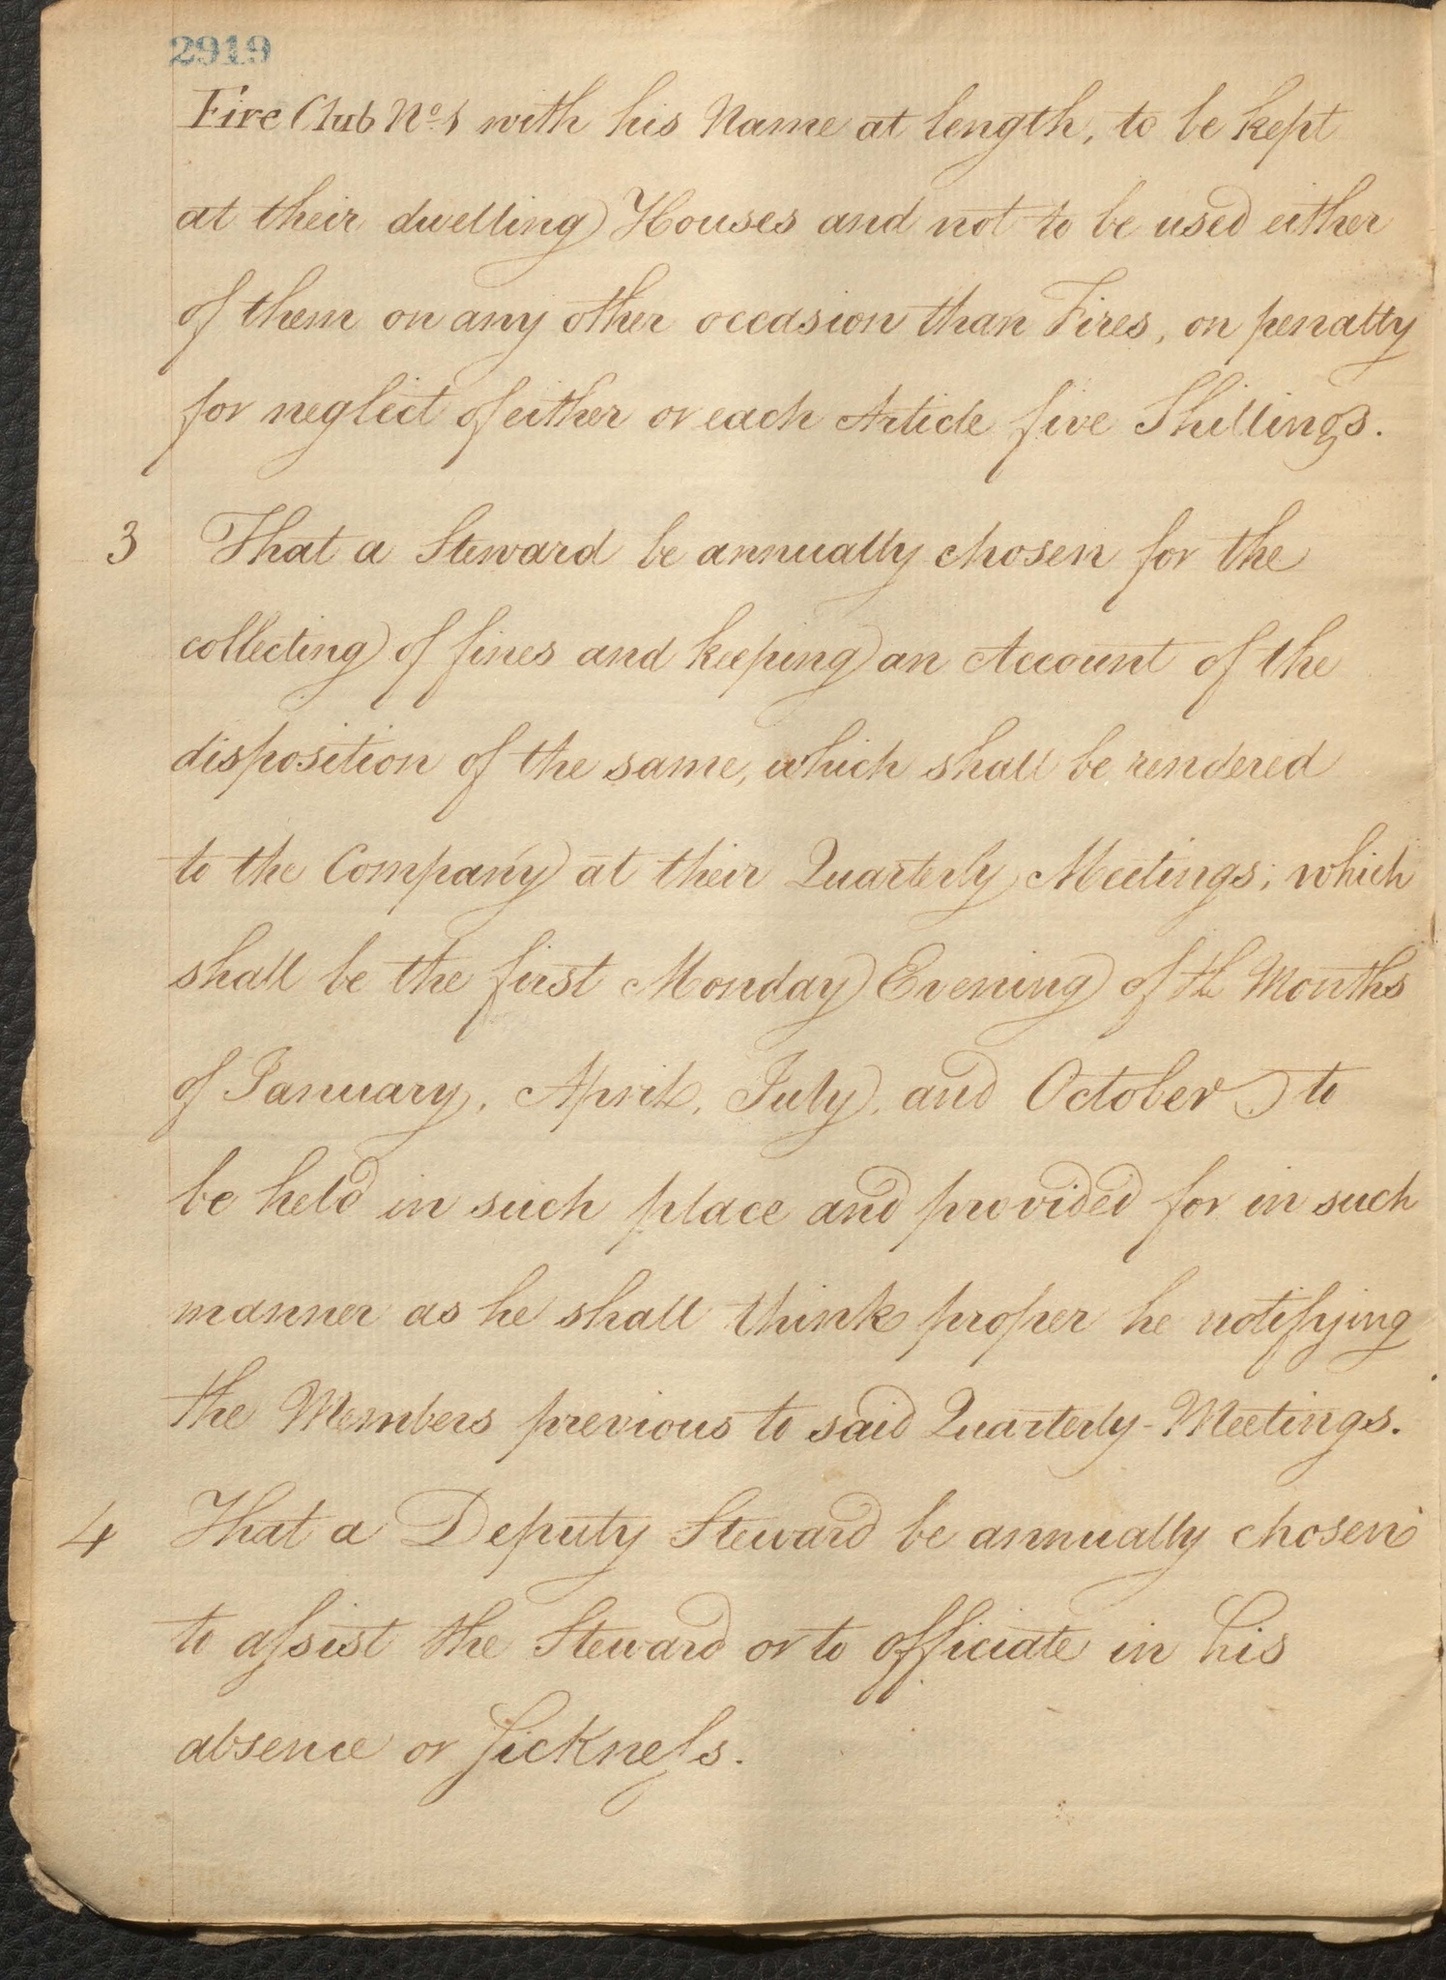 2919
Fire Club No. 1 with his Name at length, to be kept
at their dwelling Houses and not to be used either
of them on any other occasion than Fires, on penalty
for neglect of either or each Article five Shillings.
3 That a Steward be annually chosen for the
collecting of fines and keeping an Account of the
disposition of the same, which shall be rendered
to the Company at their Quarterly Meetings; which
shall be the first Monday Evening of th Months
of January, April, July, and October to
be held in such place and provided for in such
manner as he shall think proper he notifying
the Members previous to said Quarterly-Meetings.
4 That a Deputy Steward be annually chosen
to aſsist the Steward or to officiate in his
absence or Sickneſs.